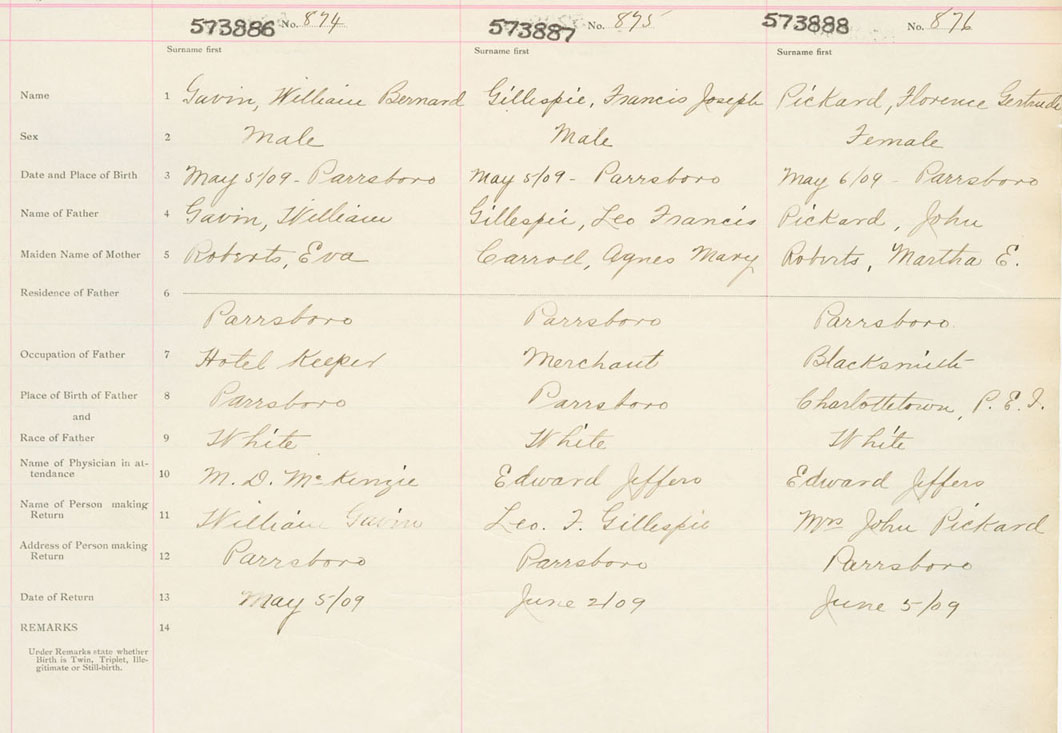 573886 No. 874 573887 No. 875 573888 No. 876
Surname first Surname first Surname first
Name 1 Gavin, William Bernard Gillespie, Francis Joseph Pickard, Florence Gertrude
Sex 2 Male Male Female
Date and Place of Birth 3 May 5/09 - Parrsboro May 5/09 - Parrsboro May 6/09 - Parrsboro
Name of Father 4 Gavin, William Gillespie, Leo Francis Pickard, John
Maiden Name of Mother 5 Roberts, Eva Carroll, Agnes Mary Roberts, Martha E.
Residence of Father 6
Parrsboro Parrsboro Parrsboro
Occupation of Father 7 Hotel Keeper Merchant Blacksmith
Place of Birth of Father 8 Parrsboro Parrsboro Charlottetown, P. E. I.
and
Race of Father 9 White White White
Name of Physician in at-
tendance 10 M. D. McKenzie Edward Jeffers Edward Jeffers
Name of Person making
Return 11 William Gavin Leo. F. Gillespie Mrs John Pickard
Address of Person making
Return 12 Parrsboro Parrsboro Parrsboro
Date of Return 13 May 5/09 June 2/09 June 5/09
REMARKS 14
Under Remarks state whether
Birth is Twin, Triplet, Ille-
gitimate or Still-birth.